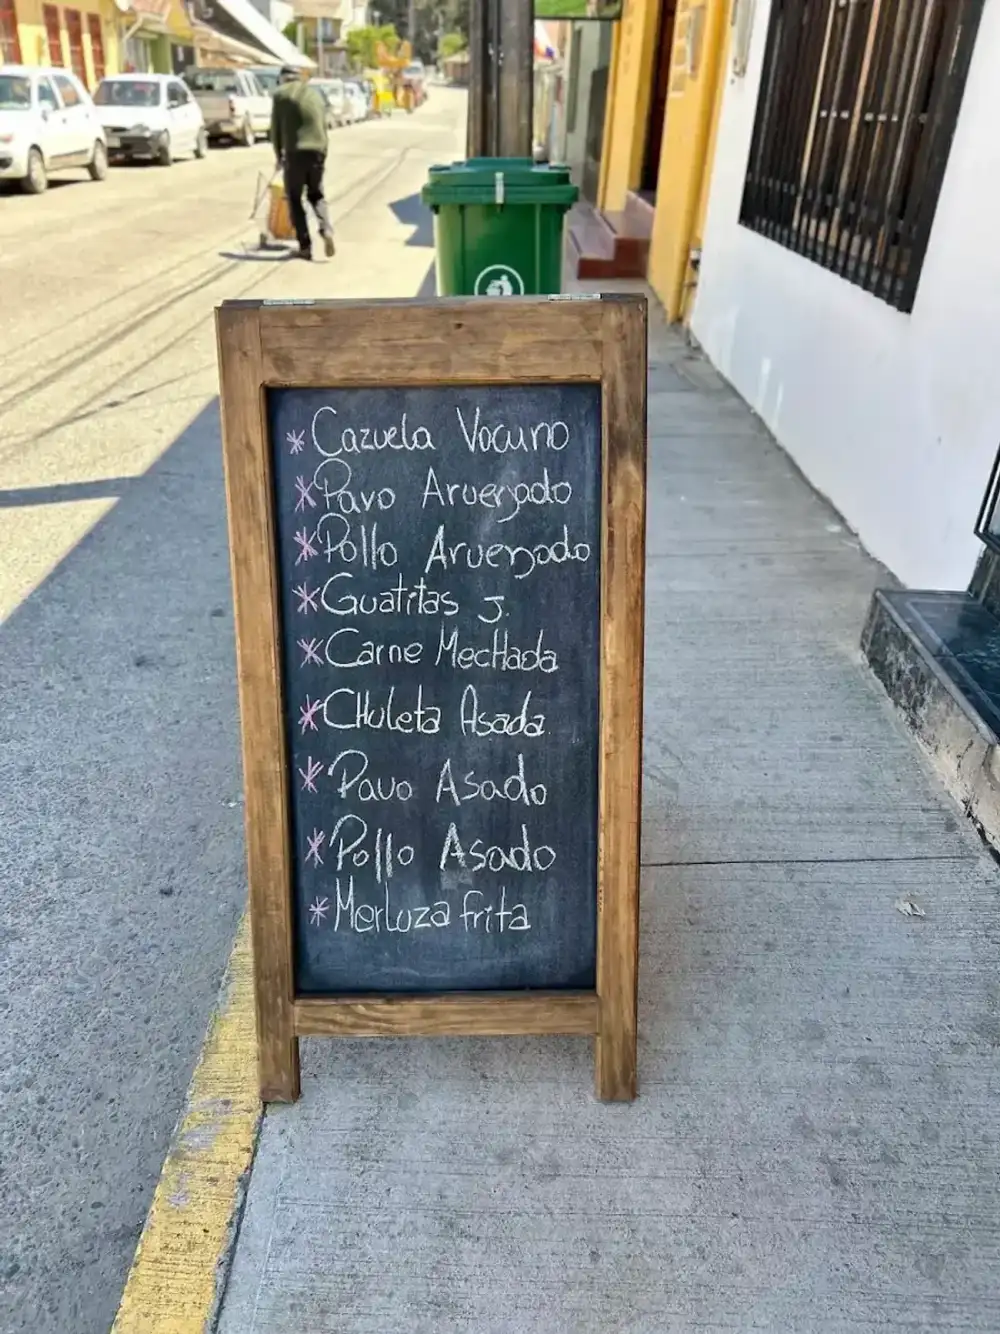 * Cazuela Vacuno
* Pavo Arverjado
* Pollo Arverjado
* Guatitas J.
* Carne MecHada
* CHuleta Asada
* Pavo Asado
* Pollo Asado
* Merluza frita